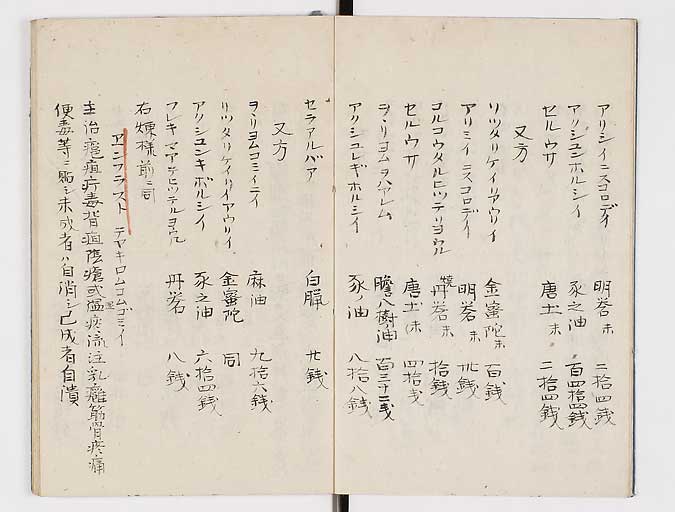 アリシイニスコロデイ 明礬末 二拾四銭
アリシユンホルシイ 豕之油 百四拾四銭
セルウサ 唐土末 二拾四銭
又方
リツタリケイリアウリイ 金蜜陀末 百銭
アリミイニスコロデイ 明礬末 廿銭
コルコウタルヒツテリヨウル 焼丹礬末 拾銭
セルウサ 唐土末 四拾銭
ヲリヨムラハアレム 膽八樹油 百三十二銭
アクシユレギホルシイ 豕ノ油 八拾八銭
セラアルバア 白臘 廿銭
又方
ヲリヨムコミイニイ 麻油 九拾六銭
リツタリケイリイアウリイ 金蜜陀 同
アクシユンキボルシイ 豕之油 六拾四銭
フレキマアテヒツテルヨウル 丹礬 八銭
右煉様前ニ同
ヱンフラスト テヤキロムコムゴミイ
主治瘡疽疔毒背疽陰瘡或瘟疫流注乳癰筋骨疼痛
便毒等ニ貼シ未成者ハ自消シ已成者自潰